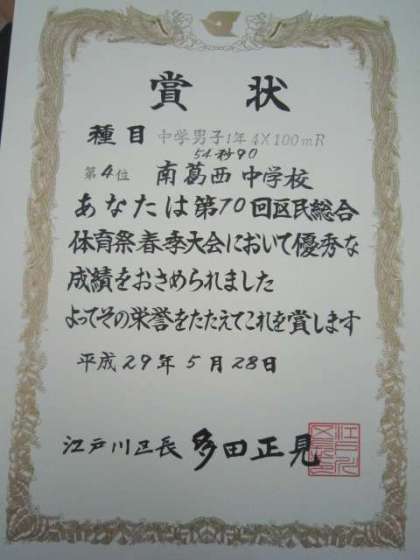 賞状
種目 中学男子1年 4×100mR
54秒90
第4位 南葛西中学校
あなたは第70回区民総合
体育祭春季大会において優秀な
成績をおさめられました
よってその栄誉をたたえてこれを賞します
平成29年5月28日
江戸川区長 多田正見